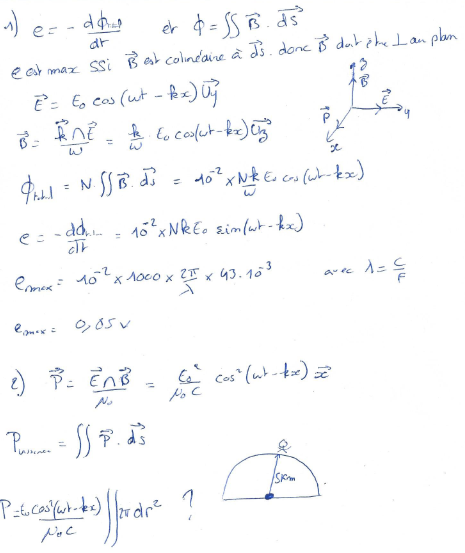 1) e = - dϕtotal/dt et ϕ = ∬ B⃗ . ds⃗
e est max SSi B⃗ est colinéaire à ds⃗. donc B⃗ doit être ⊥ au plan
E⃗ = E₀ cos(ωt - kx) U⃗y
z
B⃗
E⃗
y
P⃗
x
B⃗ = k⃗ ∩ E⃗ / ω = k/ω . E₀ cos(ωt - kx) U⃗z
ϕtotal = N.∬ B⃗ . ds⃗ = 10⁻² × Nk/ω E₀ cos(ωt - kx)
e = - dϕ/dt = 10⁻² × NkE₀ sin(ωt - kx)
emax = 10⁻² × 1000 × 2π/λ × 43.10⁻³ avec λ = c/F
emax = 0,05 V
2) P⃗ = E⃗ ∩ B⃗ / μ₀ = E₀²/μ₀c cos²(ωt - kx) x⃗
P = ∬ P⃗ . ds⃗
5km
P = E₀cos²(ωt - kx)/μ₀c ∬ 2π dr² ?